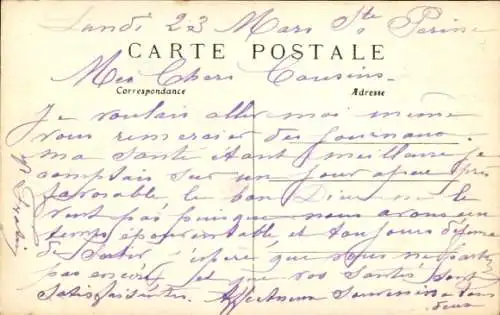 Lundi 23 Mars Ste
CARTE POSTALE
Mes Chers Cousins
Correspondance
Adresse
Je voulais aller moi même
vous remercier des journaux.
ma santé étant meilleure je
comptais sur un jour
favorable, le bon Dieu ne le
veut pas puisque nous avons un
temps épouvantable et toujours défense
de sortir j'espère que vous ne partez
pas encore et que vos santés sont
satisfaisantes. Affectueux souvenirs à tous
deux